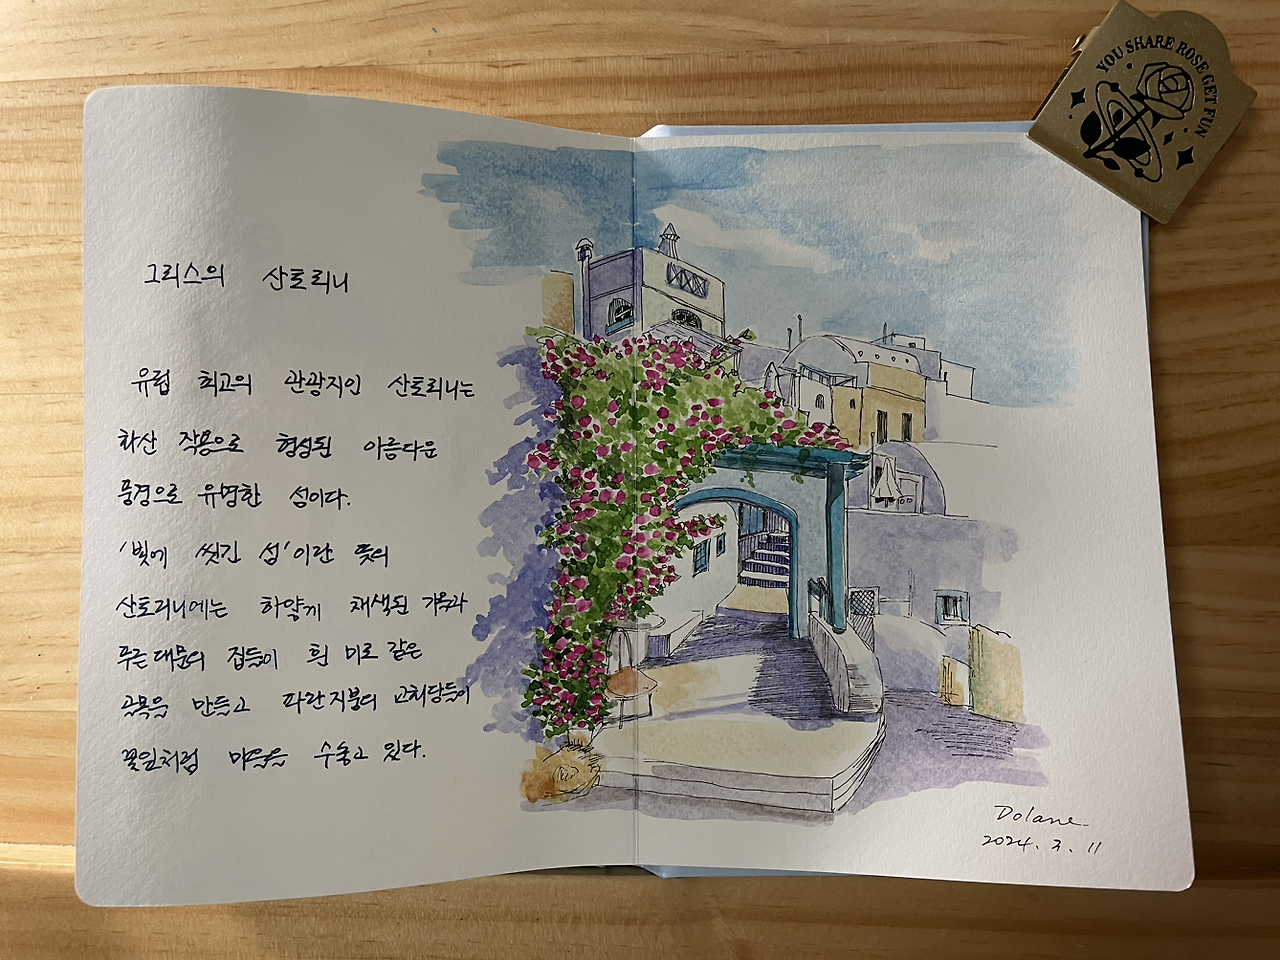 그리스의 산토리니
유럽 최고의 관광지인 산토리니는
화산 작용으로 형성된 아름다운
풍경으로 유명한 섬이다.
'빛에 씻긴 섬'이란 뜻의
산토리니에는 하얗게 채색된 가옥과
푸른대문의 집들이 흰 미로 같은
골목을 만들고 파란지붕의 교회당들이
꽃잎처럼 마을을 수놓고 있다.
YOU SHARE ROSE GET FUN
Dolane
2024. 3. 11